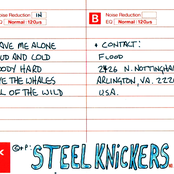 Noise Reduction IN
EQ Normal:120us
B Noise Reduction
EQ Normal:120us
AVE ME ALONE
UD AND COLD
ODY HARD
E THE WHALES
L OF THE WILD
* CONTACT:
FLOOD
2426 N. NOTTINGHAM
ARLINGTON, VA. 222
USA.
STEEL KNICKERS